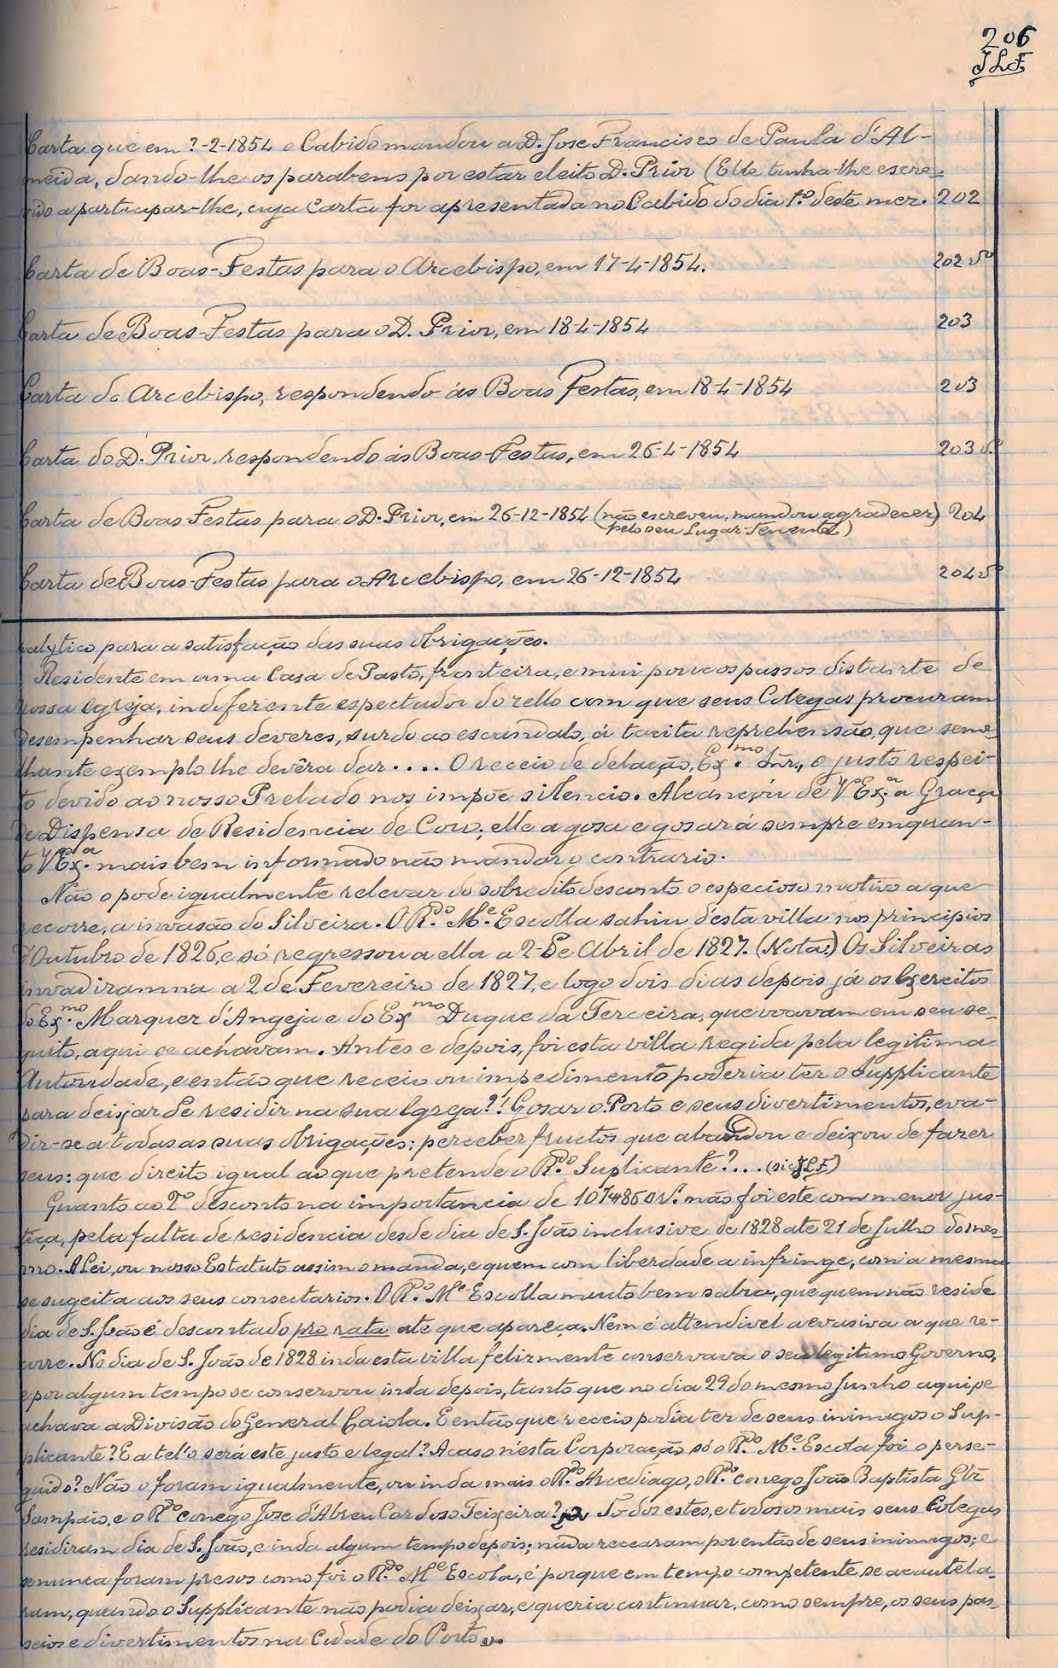 206
JLF
Carta que em ?-2-1854 o Cabido mandou a D. Jose Francisco de Paula d'Al-
meida, dando-lhe os parabens por estar eleito D. Prior (Elle tinha-lhe escre-
vido a participar-lhe, cuja Carta foi apresentada no Cabido do dia 1.º deste mez. 202
Carta de Boas-Festas para o Arcebispo, em 17-4-1854. 202 vº
Carta de Boas-Festas para o D. Prior, em 18-4-1854 203
Carta do Arcebispo, respondendo ás Boas Festas, em 18-4-1854 203
Carta do D. Prior, respondendo ás Boas-Festas, em 26-4-1854 203 vº
Carta de Boas Festas para o D. Prior, em 26-12-1854 (não escreveu, mandou agradecer 204
pelo seu Lugar-Tenente)
Carta de Boas-Festas para o Arcebispo, em 26-12-1854 204 vº
ralytico para a satisfação das suas obrigações.
Residente em uma Casa de Pasto, fronteira, e mui poucos passos distante de
nossa Igreja, indeferente espectador do zello com que seus Colegas procuram
desempenhar seus deveres, surdo ao escandalo, á tacita reprehensão, que seme-
lhante exemplo lhe devêra dar.... O receio de delação, Ex.mo Snr., o justo respei-
to devido ao nosso Prelado nos impõe silencio. Alcançou de V Ex.a a Graça
de Dispensa de Residencia de Coro; elle a gosa e gosará sempre emquan-
to V Ex.a mais bem informado não mandar o contrario.
Não o pode igualmente relevar do sobredito desconto o especioso motivo a que
recorre, a invasão do Silveira. O R.do M.e Escolla sahiu d'esta villa nos principios
d'Outubro de 1826, e só regressou a ella a 2 de Abril de 1827. (Nota:) Os Silveiras
invadiram-na a 2 de Fevereiro de 1827, e logo dois dias depois já os Exercitos
do Ex.mo Marquez d'Angeja e do Ex.mo Duque da Terceira, que voavam em seu se-
quito, aqui se achavam. Antes e depois, foi esta villa regida pela legitima
Autoridade, e então que receio ou impedimento poderia ter o Supplicante
para deixar de residir na sua Igreja?! Gosar o Porto e seus divertimentos, eva-
dir-se a todas as suas obrigações; perceber fructos que abandou e deixou de fazer
seus: que direito igual ao que pretende o R.do Suplicante?... (sic JLF)
Quanto ao 2º desconto na importancia de 107486 não foi este com menor jus-
tiça, pela falta de residencia desde dia de S. João inclusive de 1828 até 21 de Julho do mes-
mo. A Lei, ou nosso Estatuto assim o manda, e quem com liberdade a infringe, com a mesma
se sugeita aos seus consectarios. O R.do M.e Escolla muito bem sabia, que quem não reside
dia de S. João é descontado pro rata até que apareça. Nem é attendivel a evasiva a que re-
corre. No dia de S. João de 1828 inda esta villa felizmente conservava o seu legitimo Governo,
e por algum tempo se conservou inda depois, tanto que no dia 29 do mesmo Junho aqui se
achava a Divisão do General Caiola. E então que receio podia ter de seus inimigos o Sup-
plicante? E a tel'o será este justo e legal? Acaso n'esta Corporação só o R.do M.e Escola foi o perse-
guido? Não o foram igualmente, ou inda mais o R.do Arcediago, o R.do conego João Baptista
Sampaio, e o R.do conego Jose d'Abreu Cardoso Teixeira? Todos estes, e todos os mais seus Colegas
residiram dia de S. João, e inda algum tempo depois; nada recearam por então de seus inimigos; e
se nunca foram presos como foi o R.do M.e Escola, é porque em tempo competente, se acautela-
ram, quando o Supplicante não podia deixar, e queria continuar, como sempre, os seus pas-
seios e divertimentos na Cidade do Porto